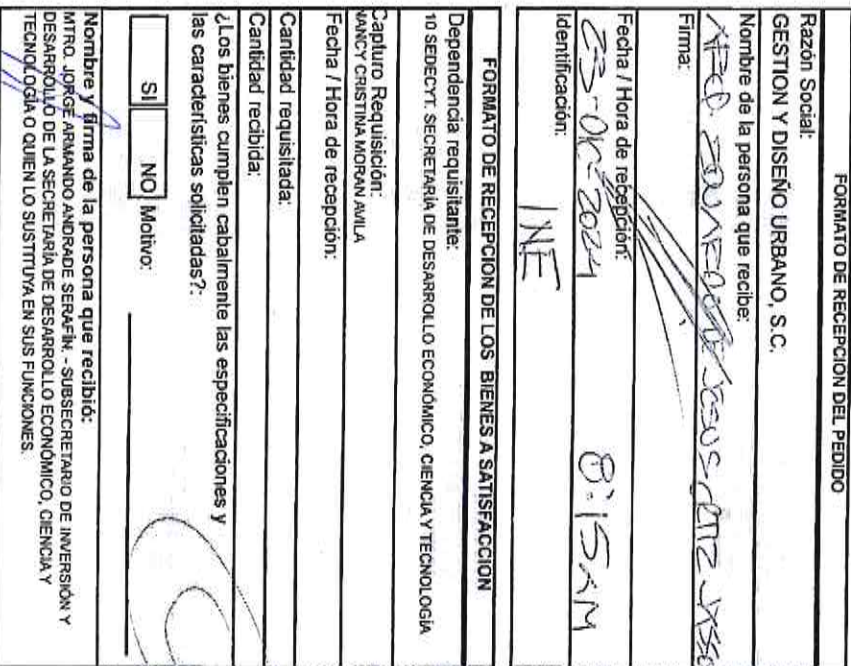 FORMATO DE RECEPCION DEL PEDIDO
Razón Social:
GESTION Y DISEÑO URBANO, S.C.
Nombre de la persona que recibe:
DE JESUS
Firma:
Fecha / Hora de recepción:
23-OK-2024 8:15 AM
Identificación:
INE
FORMATO DE RECEPCION DE LOS BIENES A SATISFACCION
Dependencia requisitante:
10 SEDECYT. SECRETARÍA DE DESARROLLO ECONÓMICO, CIENCIA Y TECNOLOGÍA
Capturo Requisición:
NANCY CRISTINA MORAN AVILA
Fecha / Hora de recepción:
Cantidad requisitada:
Cantidad recibida:
¿Los bienes cumplen cabalmente las especificaciones y
las características solicitadas?:
SI NO Motivo:
Nombre y firma de la persona que recibió:
MTRO. JORGE ARMANDO ANDRADE SERAFÍN. - SUBSECRETARIO DE INVERSIÓN Y
DESARROLLO DE LA SECRETARÍA DE DESARROLLO ECONÓMICO, CIENCIA Y
TECNOLOGÍA O QUIEN LO SUSTITUYA EN SUS FUNCIONES.